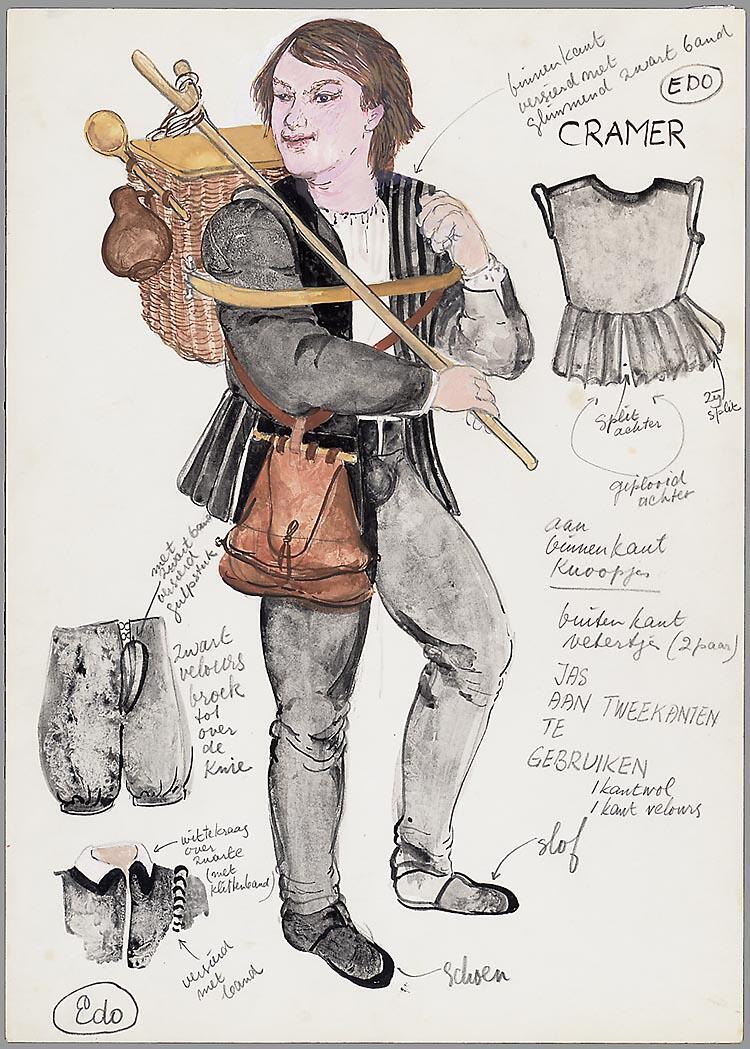 binnenkant
versierd met
glimmend zwart band
EDO
CRAMER
split
achter
zij
split
geplooid
achter
aan
binnenkant
Knoopjes
buitenkant
vetertjes (2 paar)
JAS
AAN TWEEKANTEN
TE
GEBRUIKEN
1 kant wol
1 kant velours
met
zwart band
versierd
gulpstuk
zwart
velours
broek
tot
over
de
Knie
witte kraag
over
zwarte
(met
klittenband)
versierd
met
band
slof
schoen
Edo